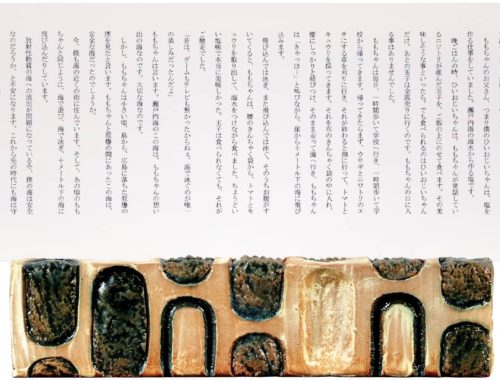 ももちゃんのお父さん、つまり僕のひいじいちゃんは、塩を
作る仕事をしていました。瀬戸内海の海水から作る塩です。
晩ごはんの時、ひいおじいちゃんは、ももちゃんが世話してい
るニワトリが産んだ玉子を、ご飯の上にのせて食べます。その美
味しそうな事といったら。でも食べられるのはひいおじいちゃん
だけ。あとの玉子は全部売りに行くのです。ももちゃんの口に入
る事はありませんでした。
ももちゃんは毎日、一時間歩いて学校へ行き、一時間歩いて学
校から帰ってきます。帰ってきたらまず、ウサギとニワトリのエ
サにする草を刈りに行き、それが終わると畑に行って、トマトと
キュウリを採ってきます。それを布のきんちゃく袋の中に入れ、
腰にしっかりと結びつけ、そのまま走って海へ行き、ももちゃん
は「きゃっほー」と叫びながら、崖から十メートル下の海に飛び
込みます。
飛び込んでは泳ぎ、また飛び込んでは泳ぐ。そのうちお腹がす
いてくると、ももちゃんは、腰のきんちゃく袋から、トマトとキ
ュウリを取り出して、海水をつけながら食べました。ちょうどい
い塩味で本当に美味しかった。玉子は食べられなくても、それが
ご馳走でした。
「昔は、ゲームもテレビも無かったからねぇ。海で泳ぐのが唯一
の楽しみだったんだよ」
ももちゃんは言います。瀬戸内海のこの海は、ももちゃんの思い
出の海なのです。大切な海なのです。
しかし、ももちゃんは小さい頃、島から、広島に落ちた原爆の
煙を見たと言います。ももちゃんと原爆の間にあったこの海は、
安全な海だったのでしょうか。
今、僕も海の近くの街に住んでいる。そして、あの頃のもも
ちゃんと同じように、海で遊び、海で泳ぎ、十メートル下の海に
飛び込んだりしています。
放射性物質の海への流出が問題になっているが、僕の海は安全
なのだろうか、と不安になります。これから先の時代にも海は守